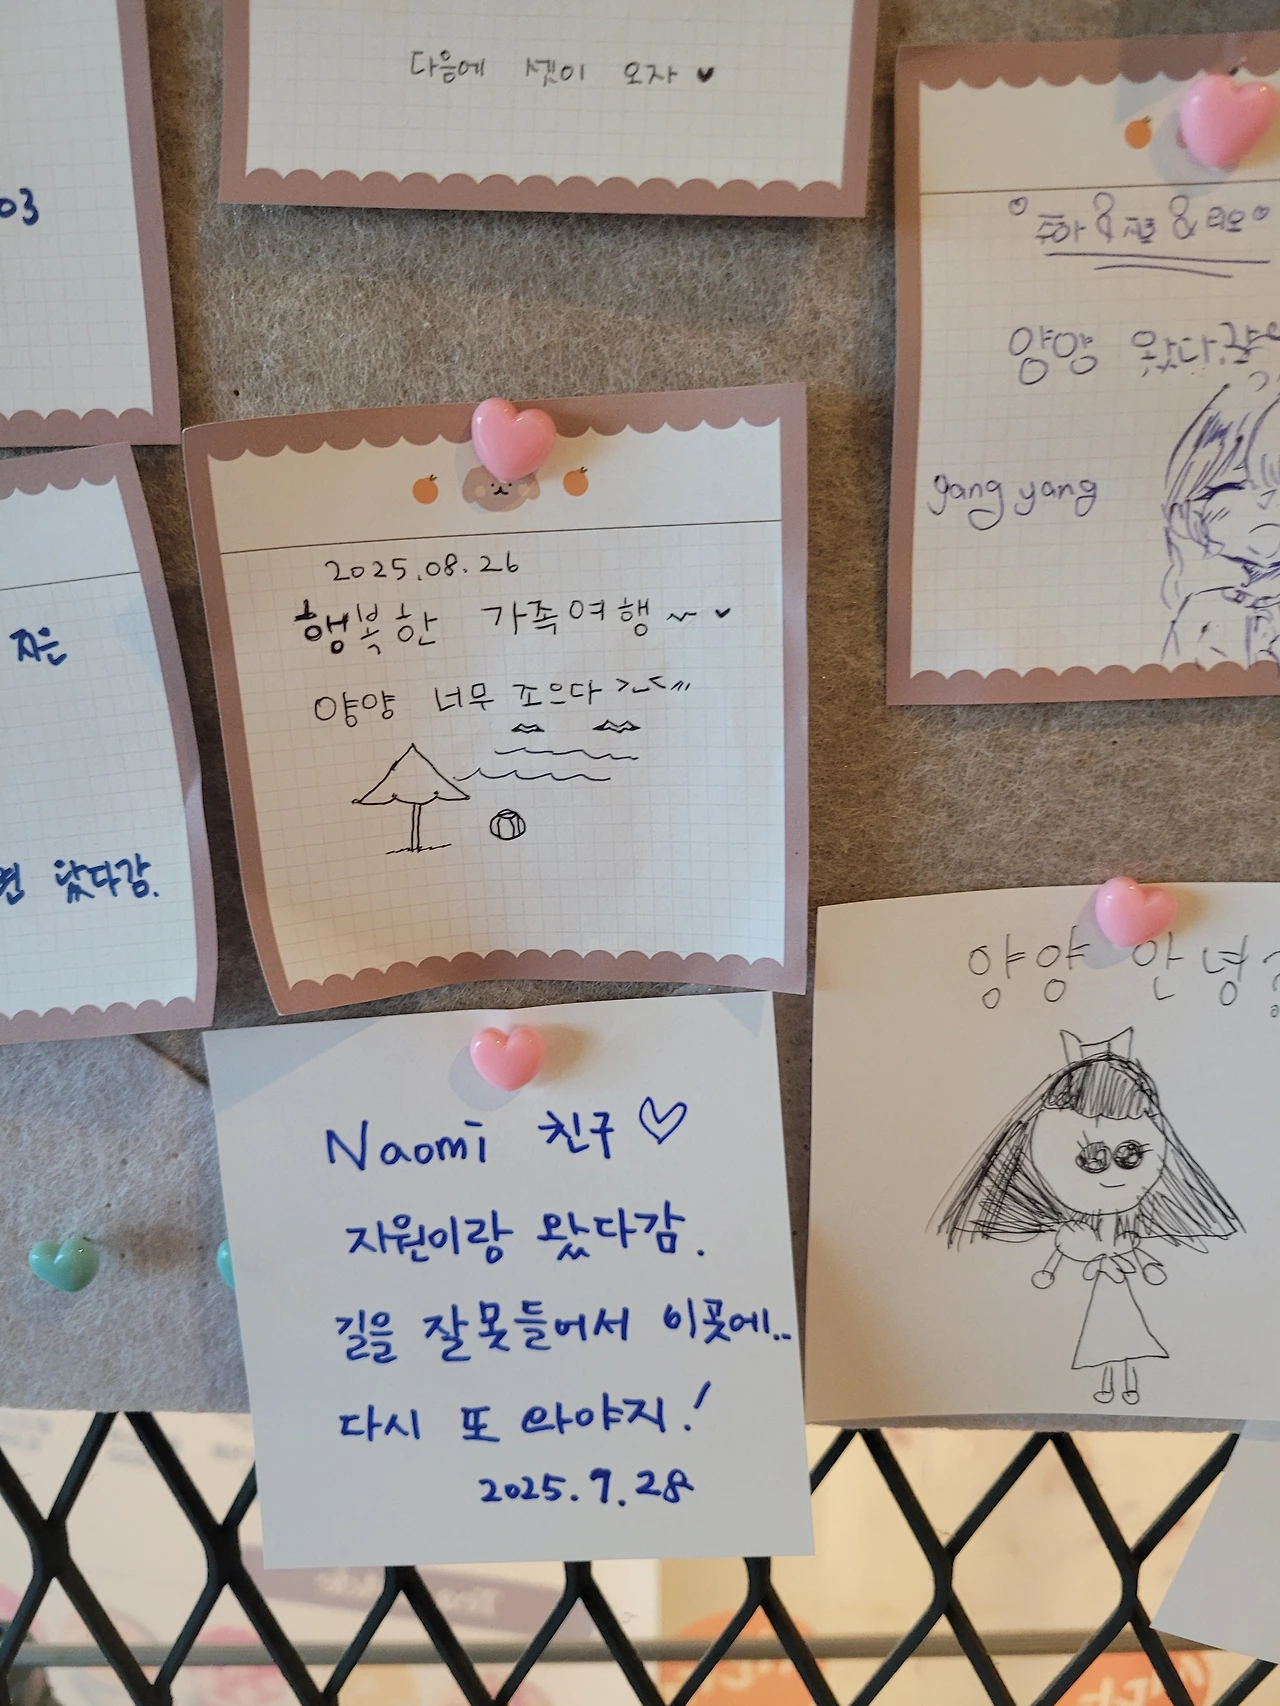 다음에 셋이 오자 ♥
03
양양 왔다감
yang yang
2025.08.26
행복한 가족여행 ~ ♥
양양 너무 조으다 >_<〃
지은
왔다감.
양양 안녕
Naomi 친구 ♡
자원이랑 왔다감.
길을 잘못들어서 이곳에..
다시 또 와야지!
2025.9.28